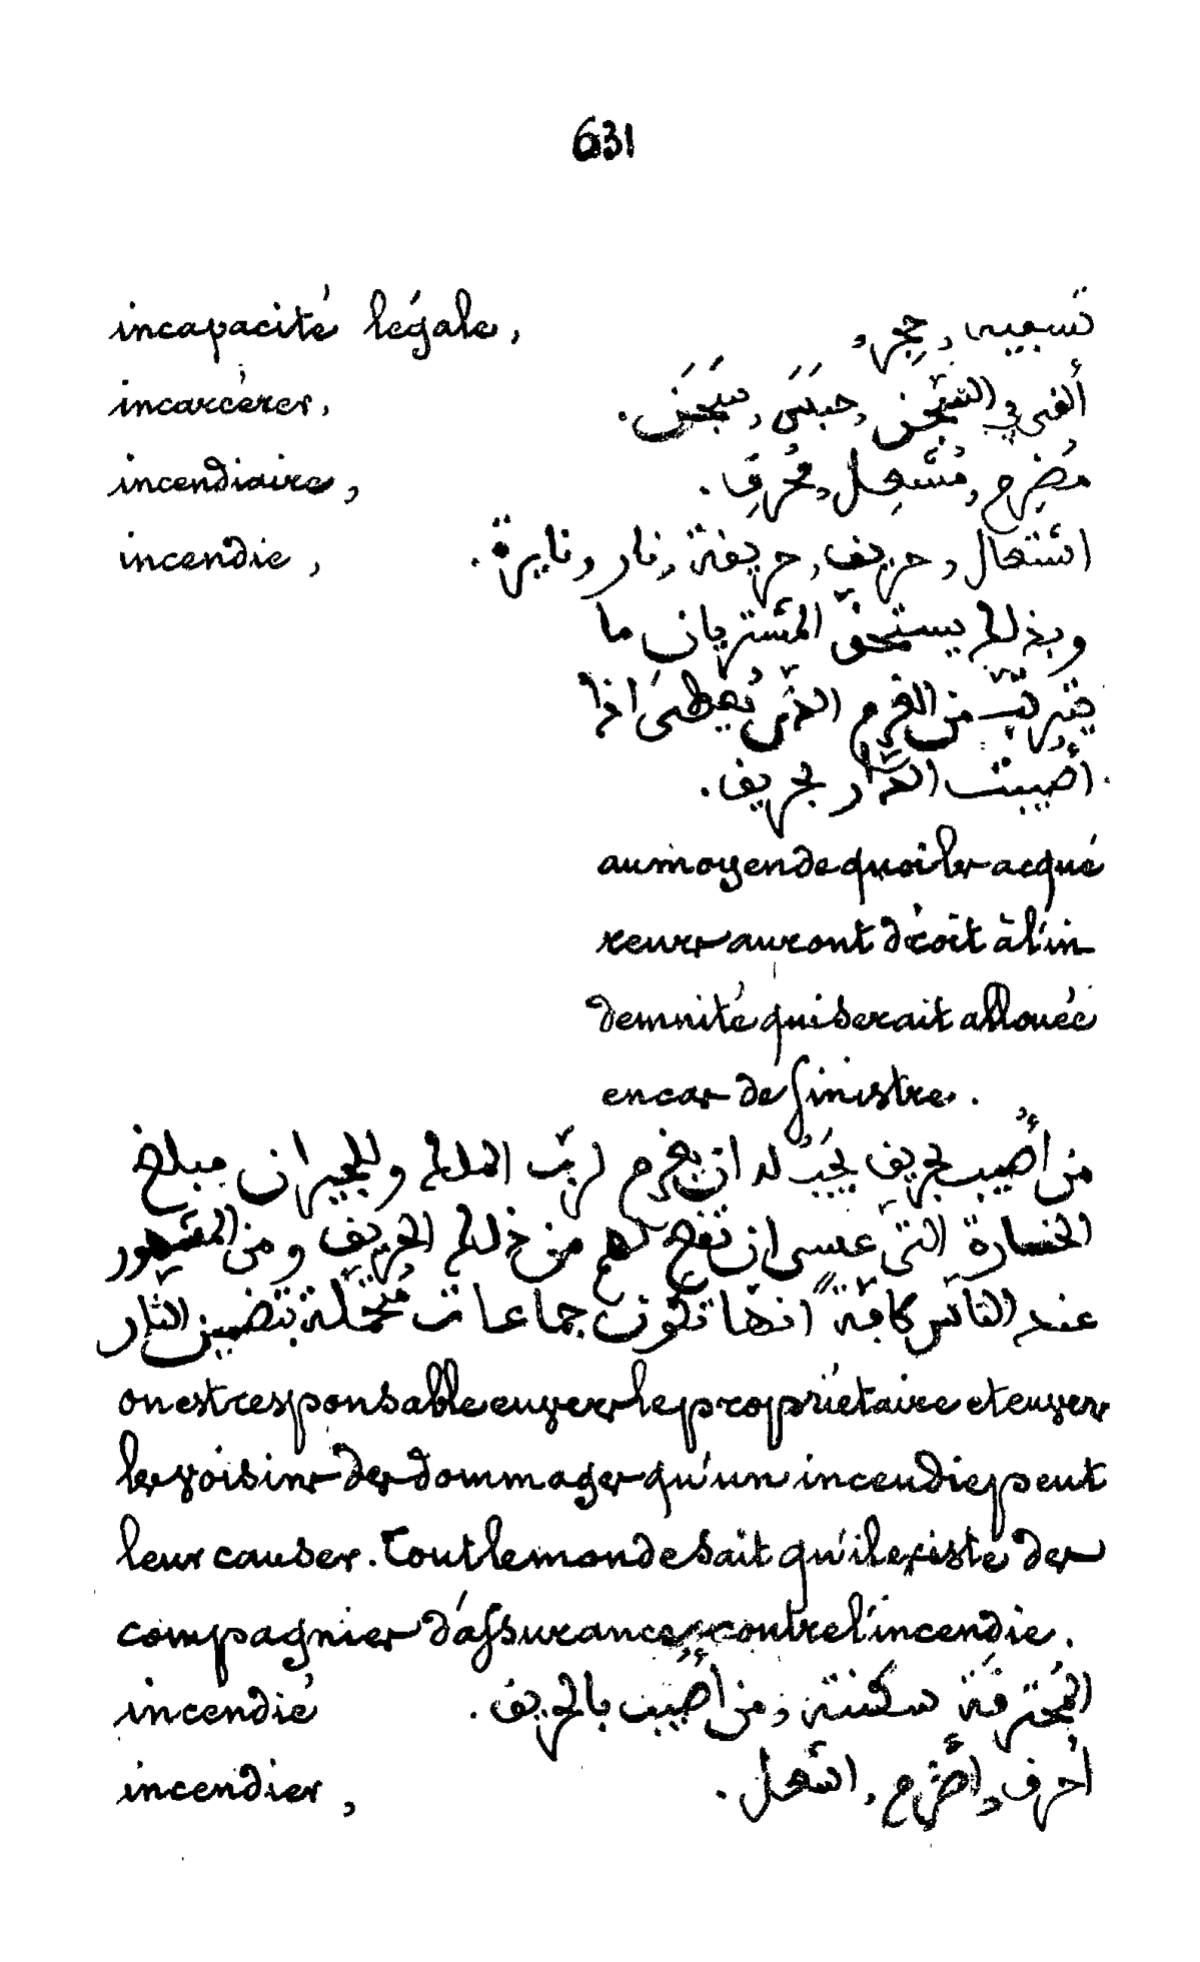 631
incapacité légale, تسبيه, حِجر,
incarcérer, ألقى في السّجن, حبَسَ, سَجَن.
incendiaire, مُضرِم, مُشعِل, مُحرِق.
incendie, اشتعال, حريق, حريقة, نار, نايرة.
وبذلك يستحقّ المشتريان ما
يترتّب من الغرم الذّي يُعطَى اذا
أُصيبت الدّار بحريق.
au moyen de quoi les acqué
reurs auront droit à l'in
demnité qui serait allouée
en cas de sinistre.
من أُصيب بحريق يَجبُ له ان يغرم لربّ الملك وللجيران مبلغ
الخسارة التّي عسى ان تقع لهم من ذلك الحريق ومن المشهور
عند النّاس كافّةً انّها تكون جماعات مُتحمّلة بتضمين النّار
on est responsable envers le propriétaire et envers
les voisins des dommages qu'un incendie peut
leur causer. Tout le monde sait qu'il existe des
compagnies d'assurances contre l'incendie.
incendié المُحترقة سكنته, من أُصيب بالحريق.
incendier, أحرق, أضرم, اشعل.